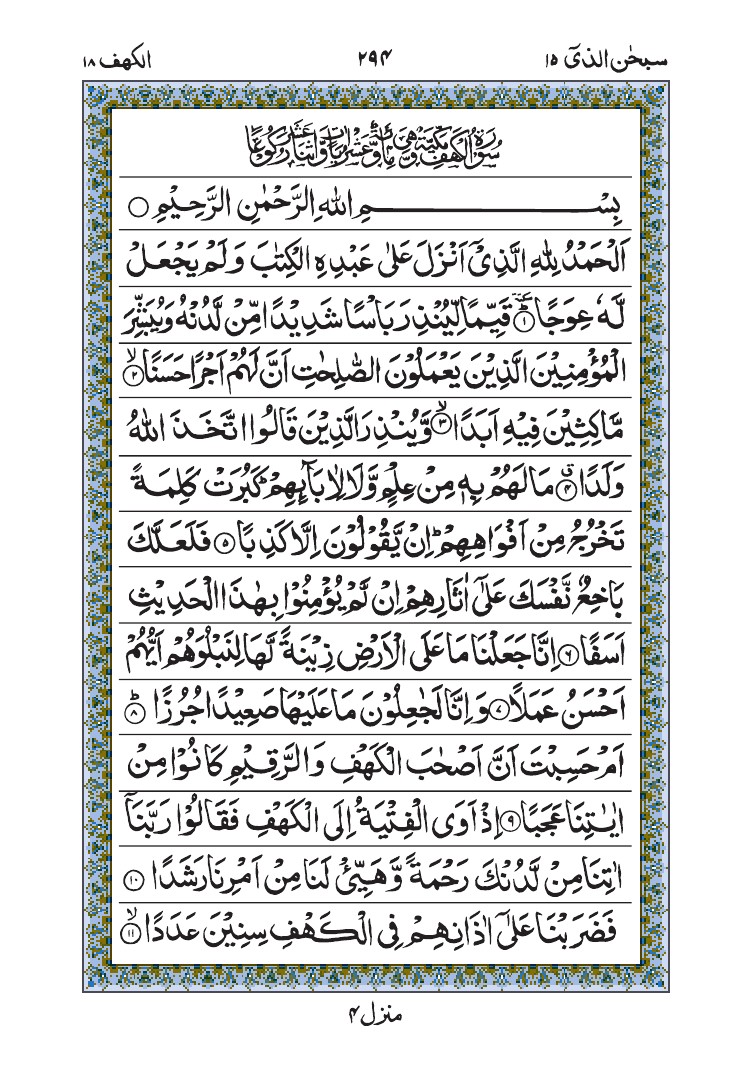 سبحٰن الذیٓ ۱۵
۲۹۴
الکھف ۱۸
سُوْرَةُ الْكَهْفِ مَكِّيَّةٌ وَّهِيَ مِائَةٌ وَّعَشْرُ اٰيَاتٍ وَّاثْنَا عَشَرَ رُكُوْعًا
بِسْـــــــــــمِ اللهِ الرَّحْمٰنِ الرَّحِيْمِ ○
اَلْحَمْدُ لِلّٰهِ الَّذِيْۤ اَنْزَلَ عَلٰى عَبْدِهِ الْكِتٰبَ وَ لَمْ يَجْعَلْ
لَّهٗ عِوَجًا ؕ۱ قَيِّمًا لِّيُنْذِرَ بَاْسًا شَدِيْدًا مِّنْ لَّدُنْهُ وَيُبَشِّرَ
الْمُؤْمِنِيْنَ الَّذِيْنَ يَعْمَلُوْنَ الصّٰلِحٰتِ اَنَّ لَهُمْ اَجْرًا حَسَنًا ۙ۲
مَّاكِثِيْنَ فِيْهِ اَبَدًا ۙ۳ وَّيُنْذِرَ الَّذِيْنَ قَالُوا اتَّخَذَ اللهُ
وَلَدًا ۗ۴ مَا لَهُمْ بِهٖ مِنْ عِلْمٍ وَّلَا لِاٰبَآىِٕهِمْ ؕ كَبُرَتْ كَلِمَةً
تَخْرُجُ مِنْ اَفْوَاهِهِمْ ؕ اِنْ يَّقُوْلُوْنَ اِلَّا كَذِبًا ۵ فَلَعَلَّكَ
بَاخِعٌ نَّفْسَكَ عَلٰۤى اٰثَارِهِمْ اِنْ لَّمْ يُؤْمِنُوْا بِهٰذَا الْحَدِيْثِ
اَسَفًا ۶ اِنَّا جَعَلْنَا مَا عَلَى الْاَرْضِ زِيْنَةً لَّهَا لِنَبْلُوَهُمْ اَيُّهُمْ
اَحْسَنُ عَمَلًا ۷ وَ اِنَّا لَجٰعِلُوْنَ مَا عَلَيْهَا صَعِيْدًا جُرُزًا ؕ۸
اَمْ حَسِبْتَ اَنَّ اَصْحٰبَ الْكَهْفِ وَ الرَّقِيْمِ كَانُوْا مِنْ
اٰيٰتِنَا عَجَبًا ۹ اِذْ اَوَى الْفِتْيَةُ اِلَى الْكَهْفِ فَقَالُوْا رَبَّنَاۤ
اٰتِنَا مِنْ لَّدُنْكَ رَحْمَةً وَّ هَيِّئْ لَنَا مِنْ اَمْرِنَا رَشَدًا ۱۰
فَضَرَبْنَا عَلٰۤى اٰذَانِهِمْ فِي الْكَهْفِ سِنِيْنَ عَدَدًا ۙ۱۱
منزل ۴